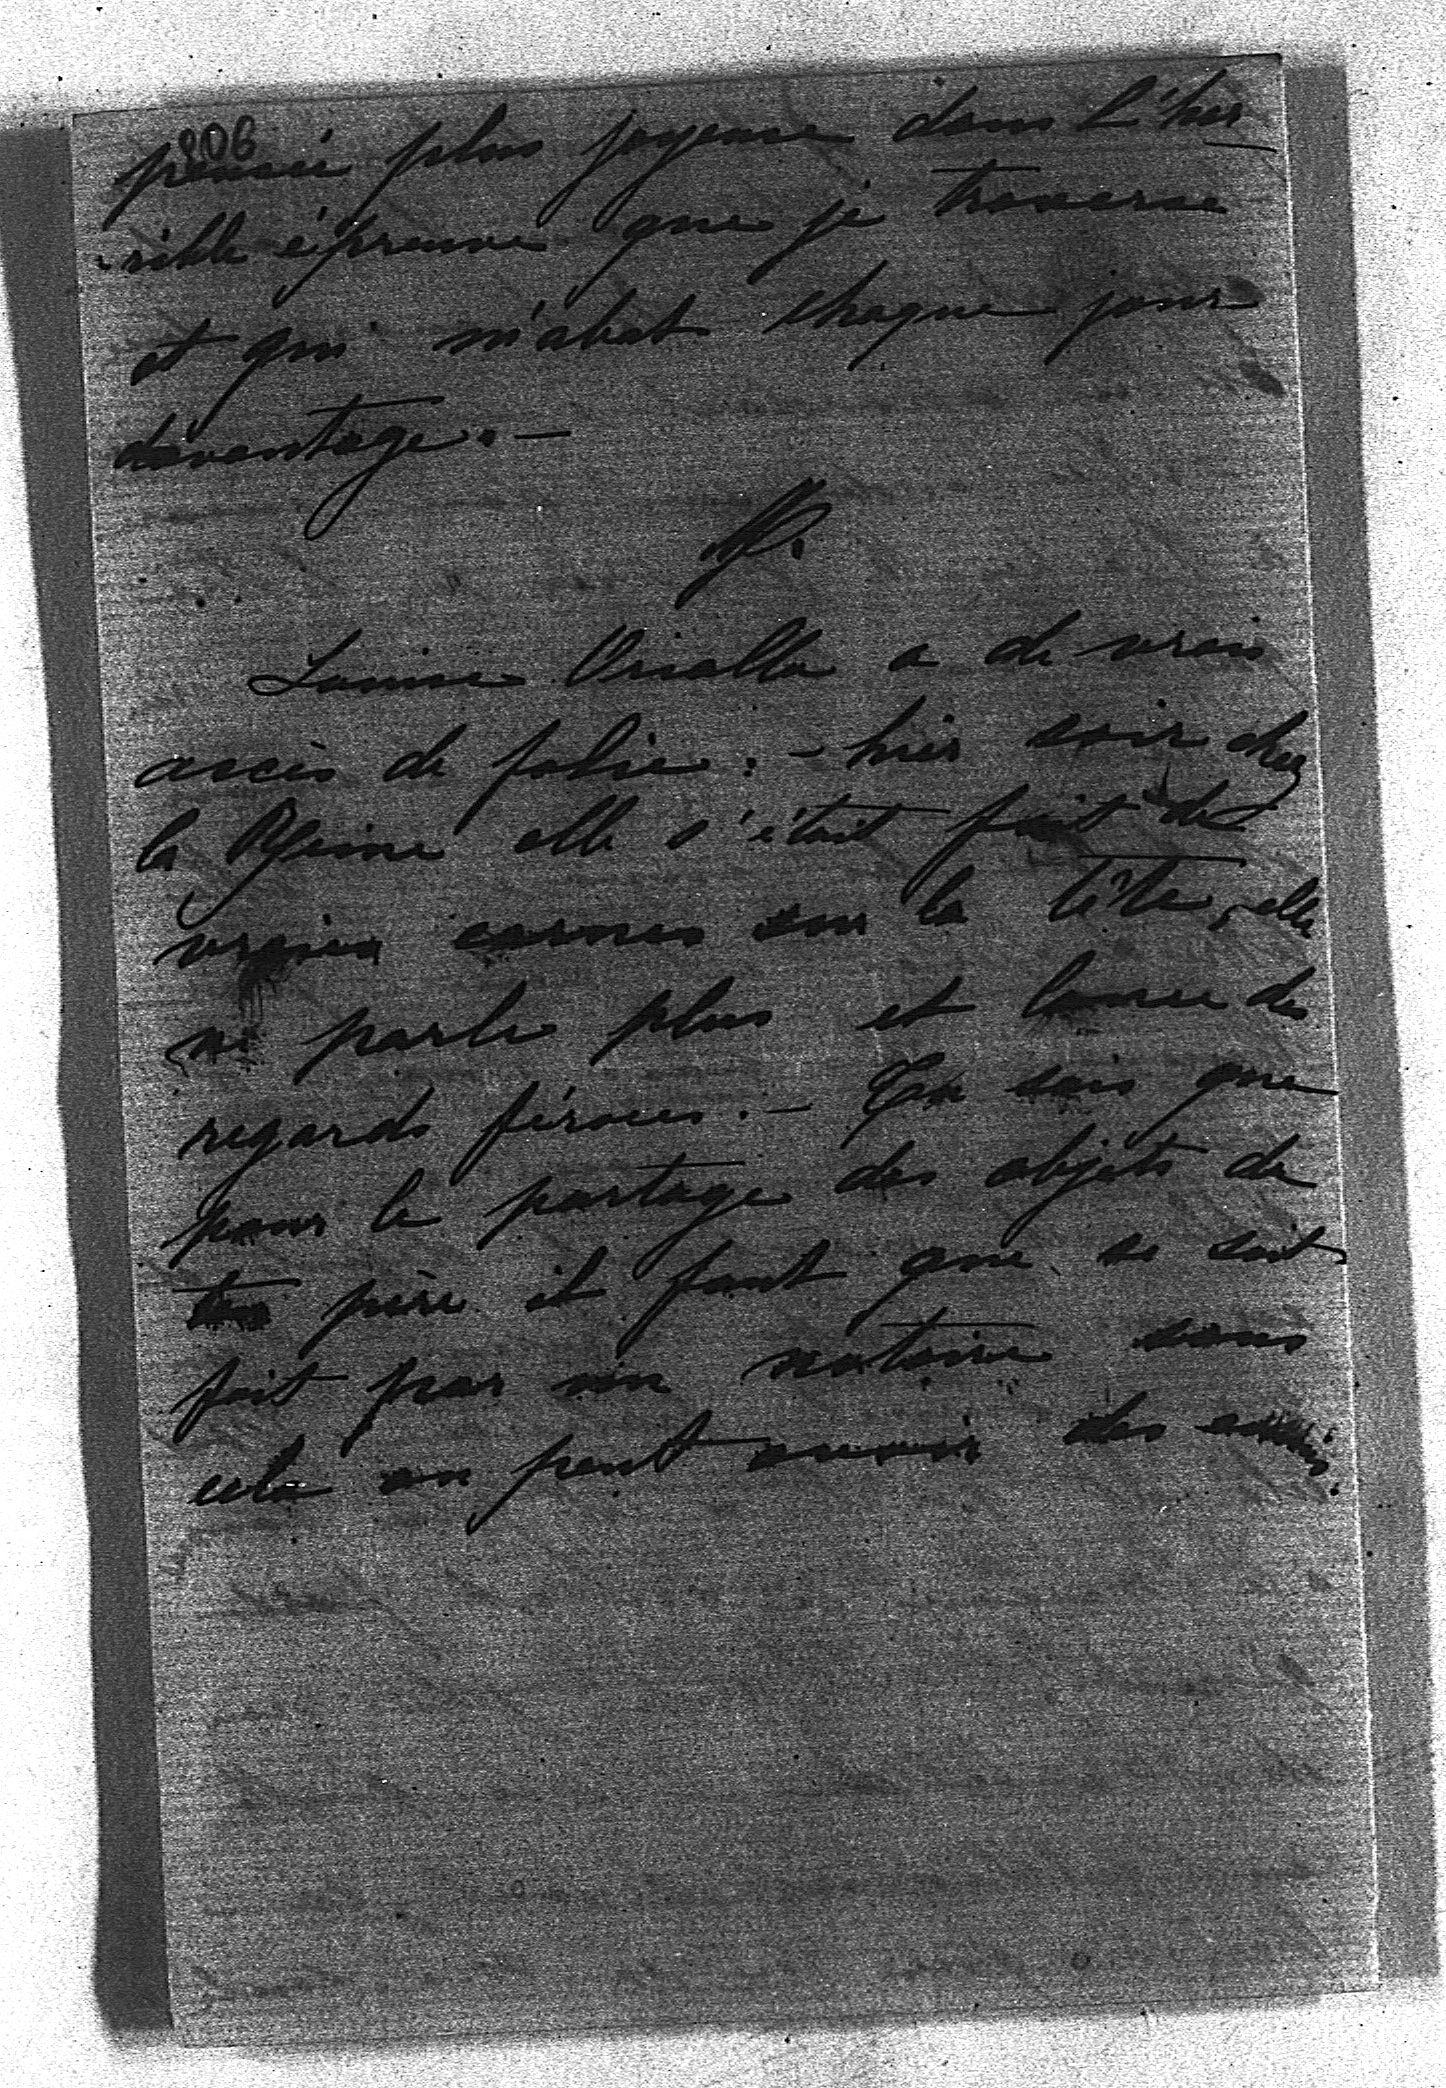 206
pensée plus joyeuse dans l'hor
-rible épreuve que je traverse
et qui m'abat chaque jour
davantage. —
Louise a de vrais
accès de folie : - hier soir chez
la Reine elle s'était fait des
vraies cornes sur la tête, elle
ne parle plus et lance des
regards féroces. — Tu sais que
pour le partage des objets de
ton père il faut que ce soit
fait par un notaire sans
cela on peut avoir des ennuis.